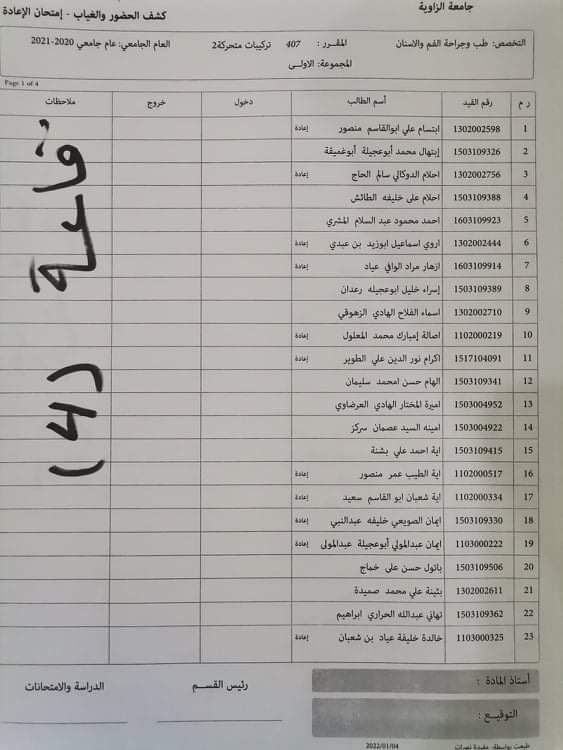 جامعة الزاوية
كشف الحضور والغياب - إمتحان الإعادة
التخصص: طب وجراحة الفم والاسنان المقرر : 407 تركيبات متحركة2 العام الجامعي: عام جامعي 2020-2021
المجموعة: الاولى
Page 1 of 4
ر م رقم القيد أسم الطالب دخول خروج ملاحظات
1 1302002598 ابتسام علي ابوالقاسم منصور إعادة
2 1503109326 إبتهال محمد أبوعجيلة أبوغميقة
3 1302002756 احلام الدوكالي سالم الحاج إعادة
4 1503109388 احلام على خليفه الطائش
5 1603109923 احمد محمود عبد السلام المشري
6 1302002444 اروي اسماعيل ابوزيد بن عبدي إعادة
7 1603109914 ازهار مراد الوافي عياد إعادة
8 1503109389 إسراء خليل ابوعجيله رعدان
9 1302002710 اسماء الفلاح الهادي الزهوقي
10 1102000219 اصالة إمبارك محمد المعلول إعادة
11 1517104091 اكرام نور الدين علي الطوير إعادة
12 1503109341 الهام حسن امحمد سليمان
13 1503004952 اميرة المختار الهادي العرضاوي
14 1503004922 امينه السيد عصمان سركز
15 1503109415 اية احمد علي بشنة
16 1102000517 اية الطيب عمر منصور إعادة
17 1102000334 اية شعبان ابو القاسم سعيد إعادة
18 1503109330 ايمان الصويعي خليفه عبدالنبي إعادة
19 1103000222 ايمان عبدالمولي أبوعجيلة عبدالمولى إعادة
20 1503109506 باتول حسن على خماج
21 1302002611 بثينة علي محمد صميدة
22 1503109362 تهاني عبدالله الحراري ابراهيم
23 1103000325 خالدة خليفة عياد بن شعبان إعادة
قاعة
(4)
أستاذ المادة : رئيس القســم الدراسة والامتحانات
التوقيع :
طبعت بواسطة: مفيدة نصرات 2022/01/04